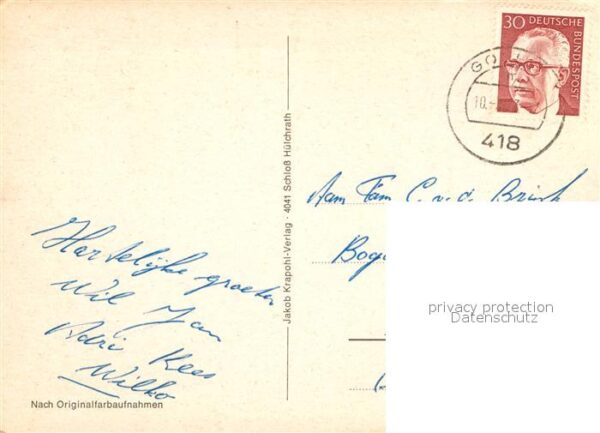 30 DEUTSCHE
BUNDESPOST
10.
418
Jakob Krapohl-Verlag · 4041 Schloß Hülchrath
Aan Fam C. v. d. Brink
Hartelijke groeten
Wil Jan
Adri Kees
Wilko
privacy protection
Datenschutz
Nach Originalfarbaufnahmen